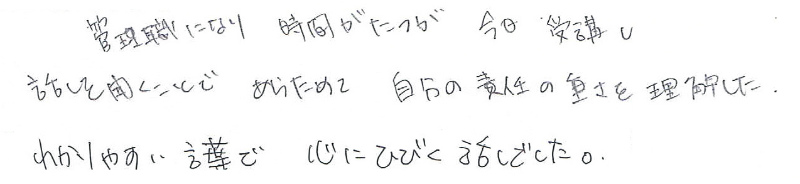 管理職になり 時間がたつが 今日 受講し
話しを聞くことで あらためて 自分の責任の重さを理解した.
わかりやすい言葉で 心にひびく話しでした。